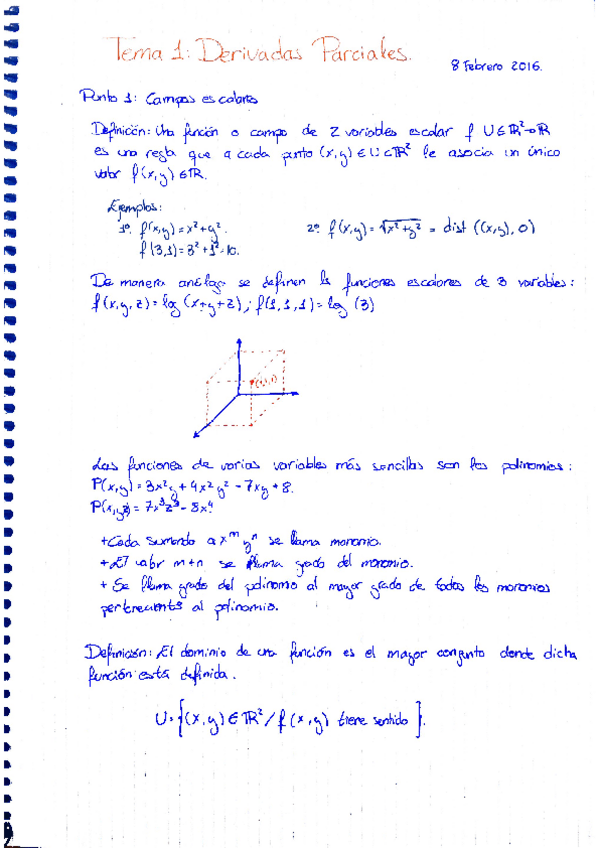 Tema 1: Derivadas Parciales.
8 Febrero 2016.
Punto 1: Campos escalares
Definición: Una función o campo de 2 variables escalar f U∈ℝ²→ℝ
es una regla que a cada punto (x,y) ∈ U⊂ℝ² le asocia un único
valor f(x,y) ∈ℝ.
Ejemplos:
1º. f(x,y) = x²+y².
f(3,1) = 3²+1² = 10.
2º. f(x,y) = √x²+y² = dist ((x,y), 0)
De manera análoga se definen ls funciones escalares de 3 variables:
f(x,y,z) = log (x+y+z) ; f(1,1,1) = log (3)
(1,1,1)
Las funciones de varias variables más sencillas son los polinomios:
P(x,y) = 3x²y + 4x²y² - 7xy + 8.
P(x,y,z) = 7x³z³ - 8x⁴
+ Cada sumando a x^m y^n se llama monomio.
+ El valor m+n se llama grado del monomio.
+ Se llama grado del polinomio al mayor grado de todos los monomios
pertenecients al polinomio.
Definición: El dominio de una función es el mayor conjunto donde dicha
función está definida.
U = {(x,y) ∈ ℝ² / f(x,y) tiene sentido}.